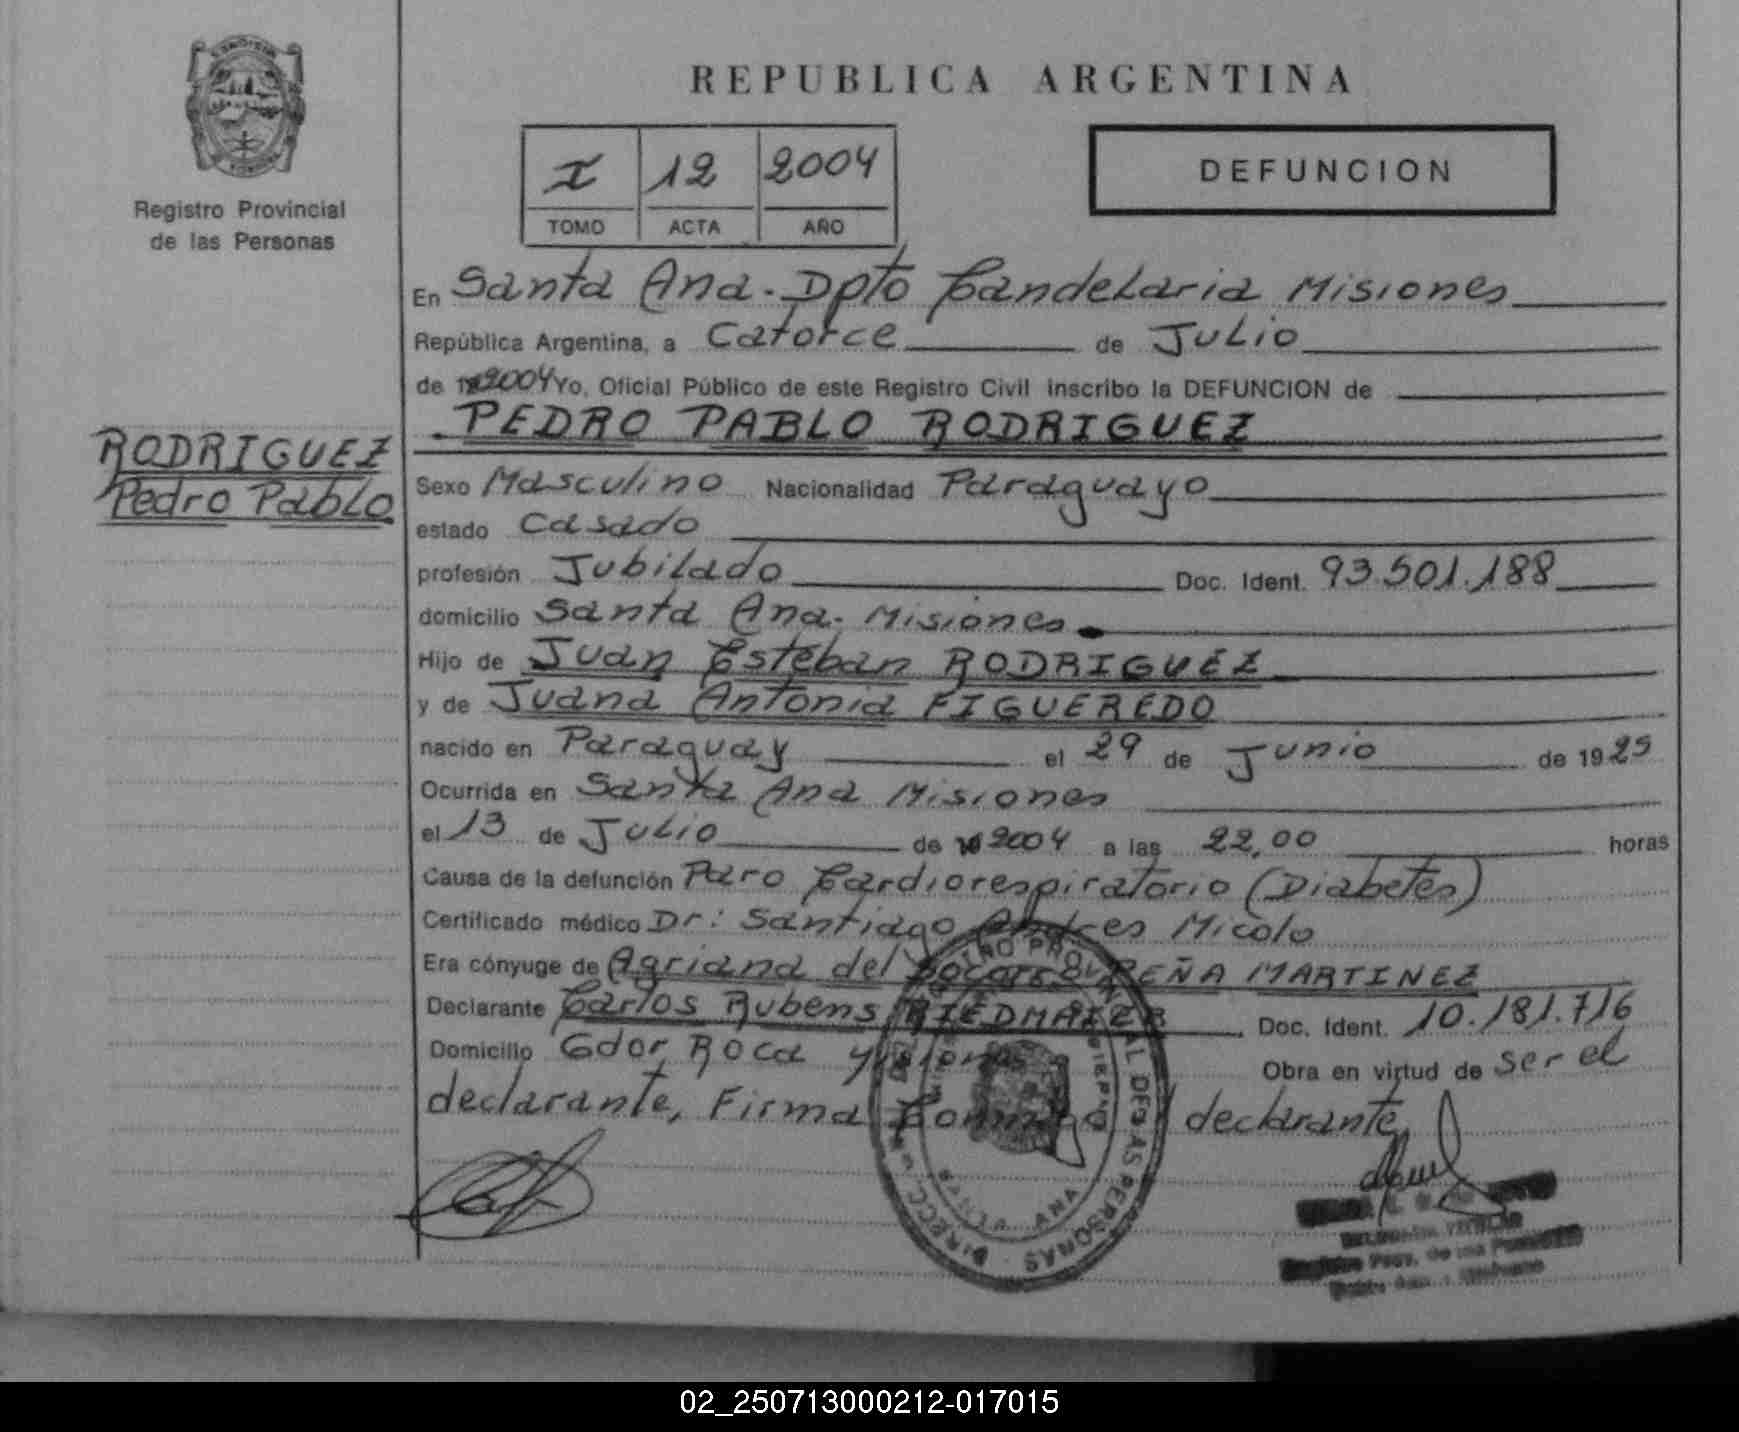 REPUBLICA ARGENTINA
Registro Provincial
de las Personas
I 12 2004
TOMO ACTA AÑO
DEFUNCION
En Santa Ana. Dpto Candelaria Misiones
República Argentina, a Catorce de Julio
de 2004 Yo, Oficial Público de este Registro Civil inscribo la DEFUNCION de
PEDRO PABLO RODRIGUEZ
RODRIGUEZ
Pedro Pablo
Sexo Masculino Nacionalidad Paraguayo
estado Casado
profesión Jubilado Doc. Ident. 93.501.188
domicilio Santa Ana. Misiones
Hijo de Juan Esteban RODRIGUEZ
y de Juana Antonia FIGUEREDO
nacido en Paraguay el 29 de Junio de 1925
Ocurrida en Santa Ana Misiones
el 13 de Julio de 2004 a las 22,00 horas
Causa de la defunción Paro Cardiorespiratorio (Diabetes)
Certificado médico Dr: Santiago Andres Micolo
Era cónyuge de Agriana del Socorro PEÑA MARTINEZ
Declarante Carlos Rubens RIEDMAIER Doc. Ident. 10.181.716
Domicilio Gdor Roca Misiones Obra en virtud de ser el
declarante, Firma Conmigo declarante
DIRECC. REGISTRO PROVINCIAL DE LAS PERSONAS
SANTA ANA
02_250713000212-017015